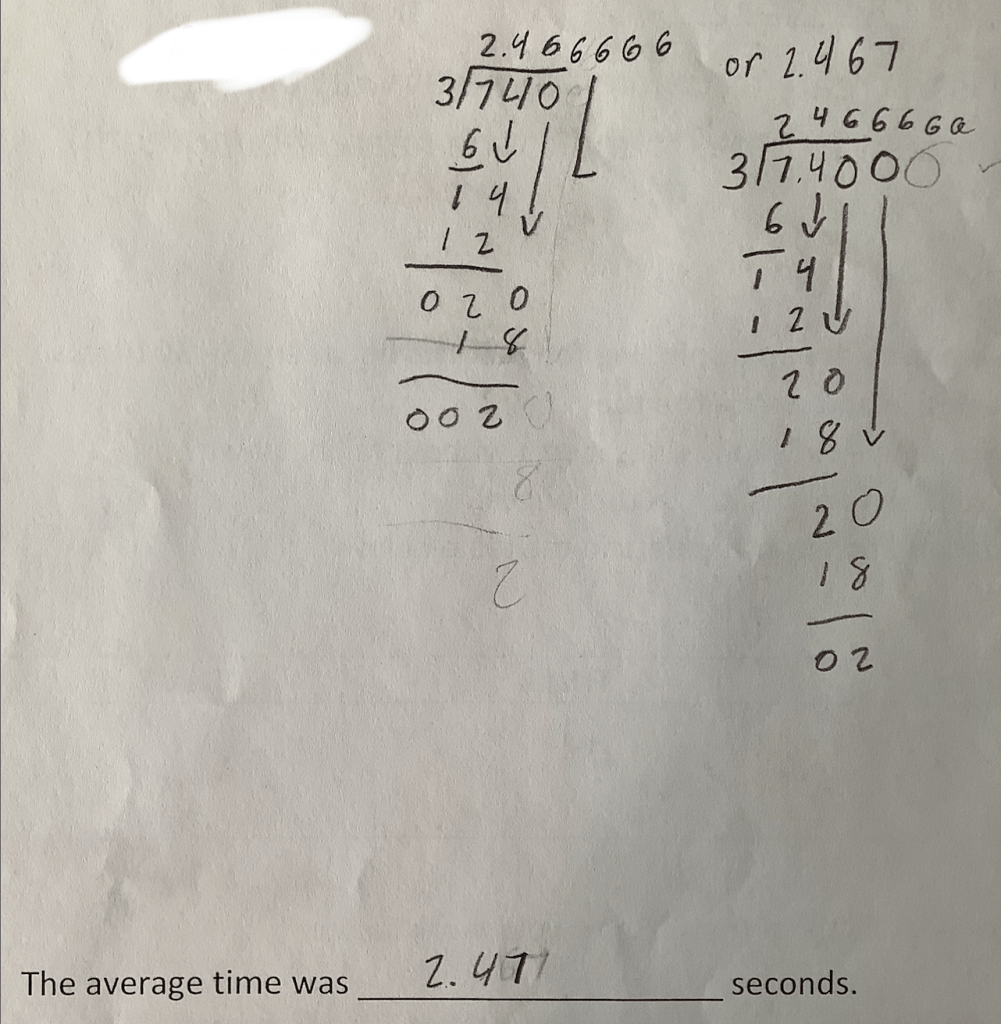 2.466666
3/740
6
14
12
020
18
002 0
8
2
or 2.467
246666a
3/7.4000
6
14
12
20
18
20
18
02
The average time was 2.47 seconds.